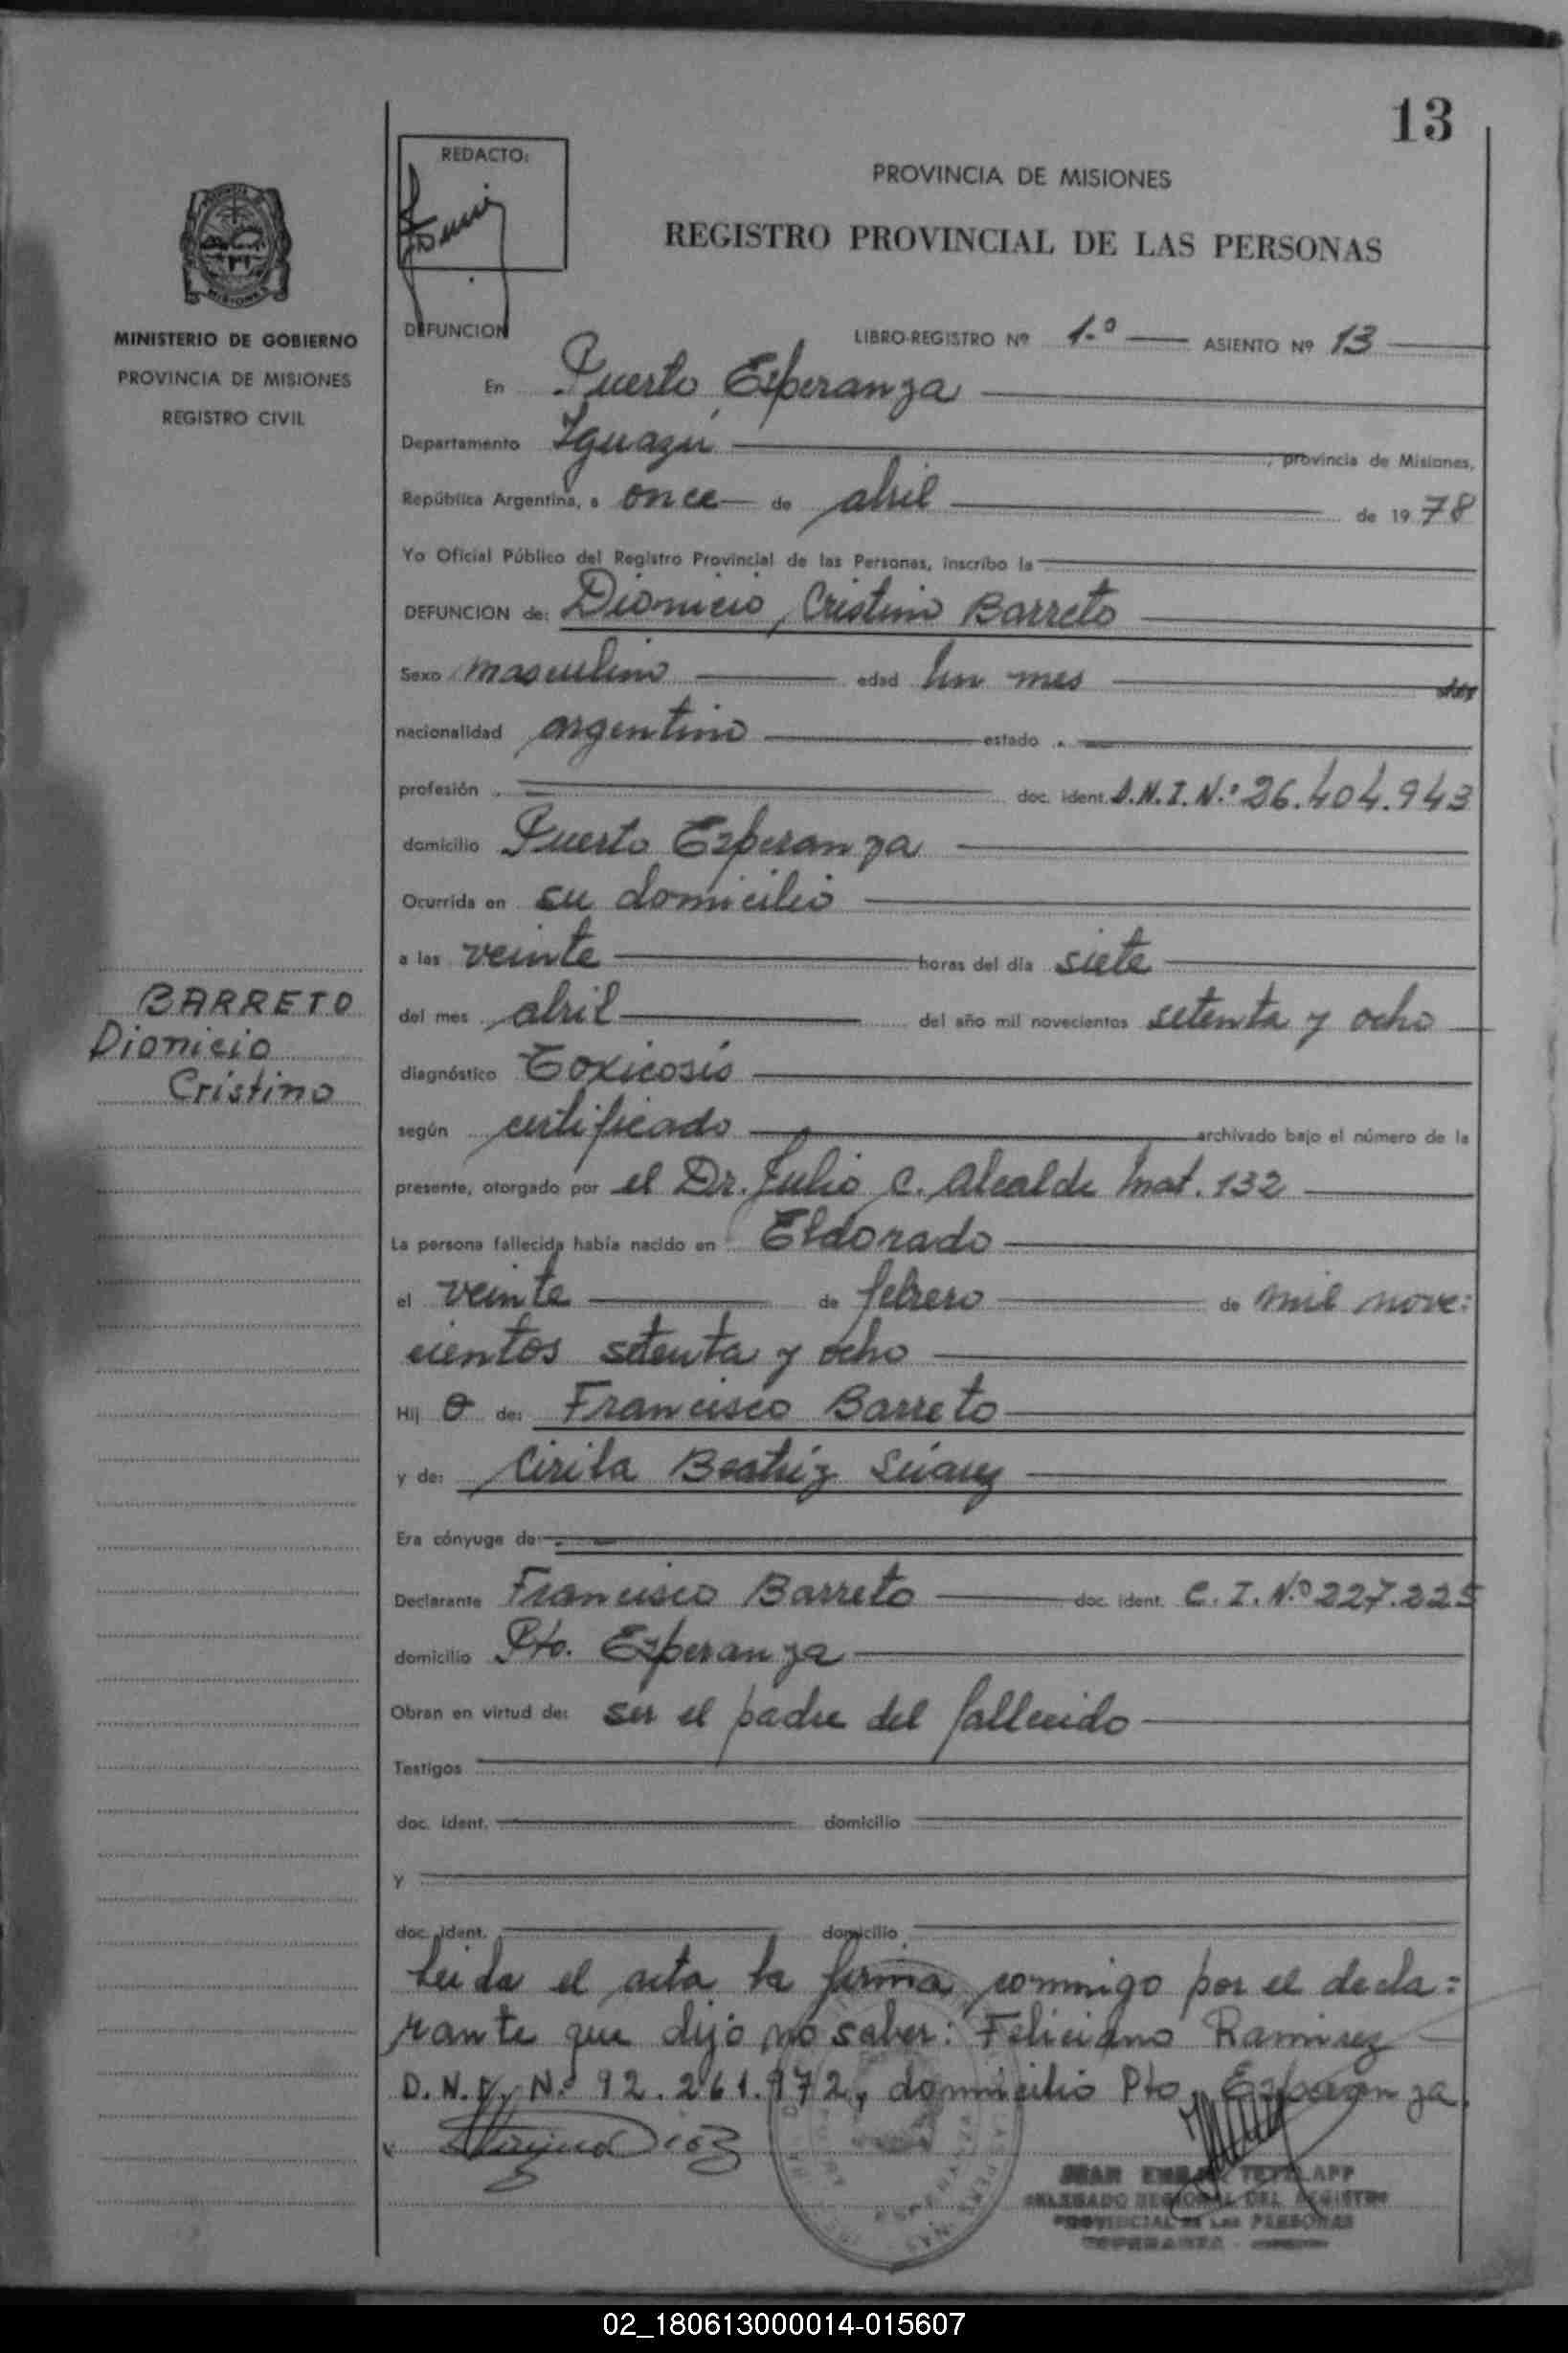 13
REDACTO:
PROVINCIA DE MISIONES
REGISTRO PROVINCIAL DE LAS PERSONAS
MINISTERIO DE GOBIERNO
PROVINCIA DE MISIONES
REGISTRO CIVIL
DEFUNCION
LIBRO-REGISTRO Nº 1.º ASIENTO Nº 13
En Puerto Esperanza
Departamento Iguazú, provincia de Misiones,
República Argentina, a once de abril de 1978
Yo Oficial Público del Registro Provincial de las Personas, inscribo la
DEFUNCION de: Dionicio, Cristino Barreto
Sexo masculino edad Un mes
nacionalidad argentino estado
profesión doc. ident. D.N.I. N.º 26.404.943
domicilio Puerto Esperanza
Ocurrida en su domicilio
a las veinte horas del día siete
BARRETO
Dionicio
Cristino
del mes abril del año mil novecientos setenta y ocho
diagnóstico Toxicosis
según certificado archivado bajo el número de la
presente, otorgado por el Dr. Julio C. Alcalde Mat. 132
La persona fallecida había nacido en Eldorado
el veinte de febrero de mil nove=
cientos setenta y ocho
Hij o de: Francisco Barreto
y de: Cirila Beatríz Súarez
Era cónyuge de:
Declarante Francisco Barreto doc. ident. C. I. Nº 227.225
domicilio Pto. Esperanza
Obran en virtud de: ser el padre del fallecido
Testigos
doc. ident. domicilio
y
doc. ident. domicilio
Leida el acta la firma conmigo por el decla=
rante que dijo no saber: Feliciano Ramirez
D.N.I. Nº 92.261.972, domicilio Pto. Esperanza
DELEGADO REGIONAL DEL REGISTRO
PROVINCIAL DE LAS PERSONAS
ESPERANZA
02_180613000014-015607